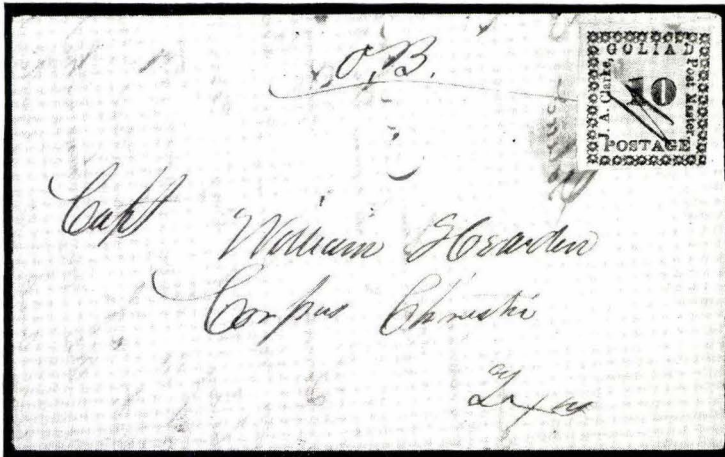 O,B.
GOLIAD
J. A. Clarke,
10
Post Master.
POSTAGE
Capt William
Corpus Christi
Texas